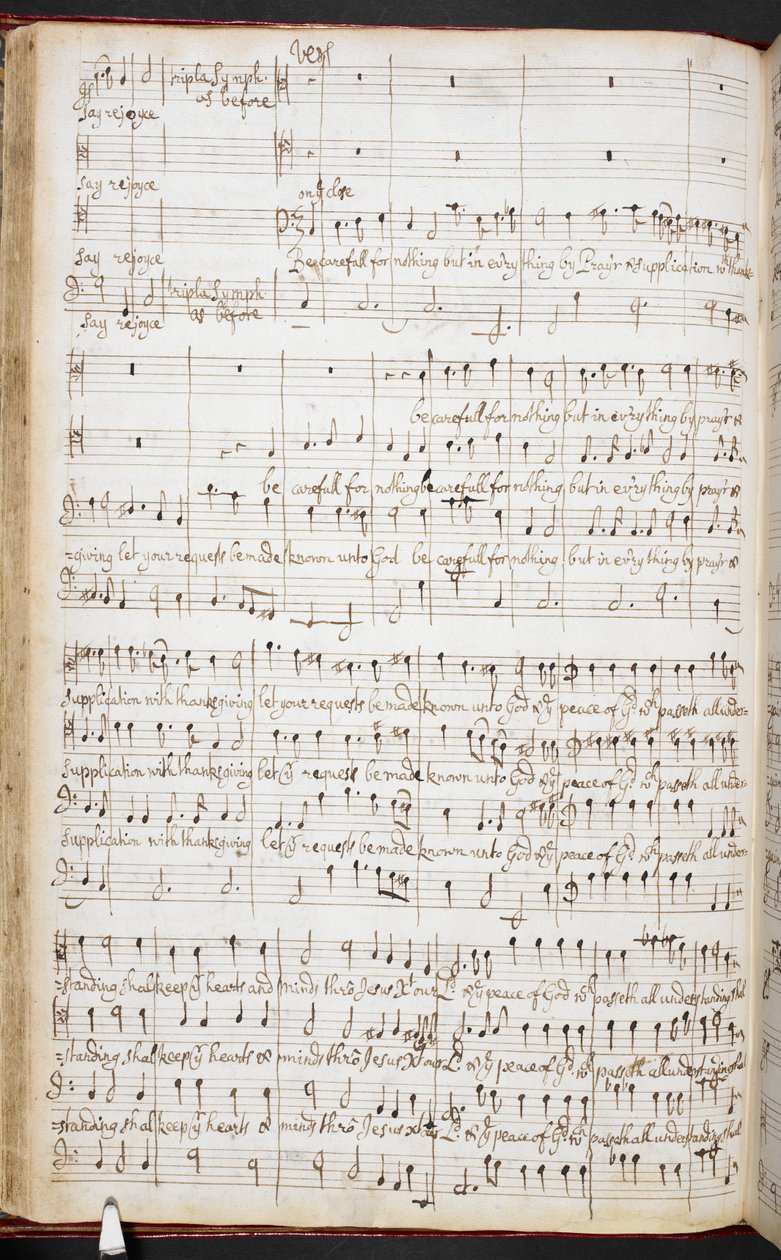 Vers
tripla Symph.
as before
say rejoyce
say rejoyce
on ye close
say rejoyce
Be carefull for nothing but in ev'ry thing by Pray'r & supplication wth thanks-
tripla Symph.
as before
say rejoyce
be carefull for nothing but in ev'ry thing by pray'r &
be carefull for nothing be carefull for nothing but in ev'ry thing by pray'r &
=giving let your requests be made known unto God be carefull for nothing but in ev'ry thing by pray'r &
supplication with thanksgiving let your requests be made known unto God & ye peace of Gd wch passeth all under=
supplication with thanksgiving let yr requests be made known unto God & ye peace of Gd wch passeth all under=
supplication with thanksgiving let yr requests be made known unto God & ye peace of Gd wch passeth all under=
=standing shal keep yr hearts and minds thrō Jesus Xt our Ld. & ye peace of God wch passeth all understanding shal
=standing shal keep yr hearts & minds thrō Jesus Xt our Ld. & ye peace of Gd wch passeth all understanding shal
=standing shal keep yr hearts & minds thrō Jesus Xt our Ld. & ye peace of Gd wch passeth all understanding shal